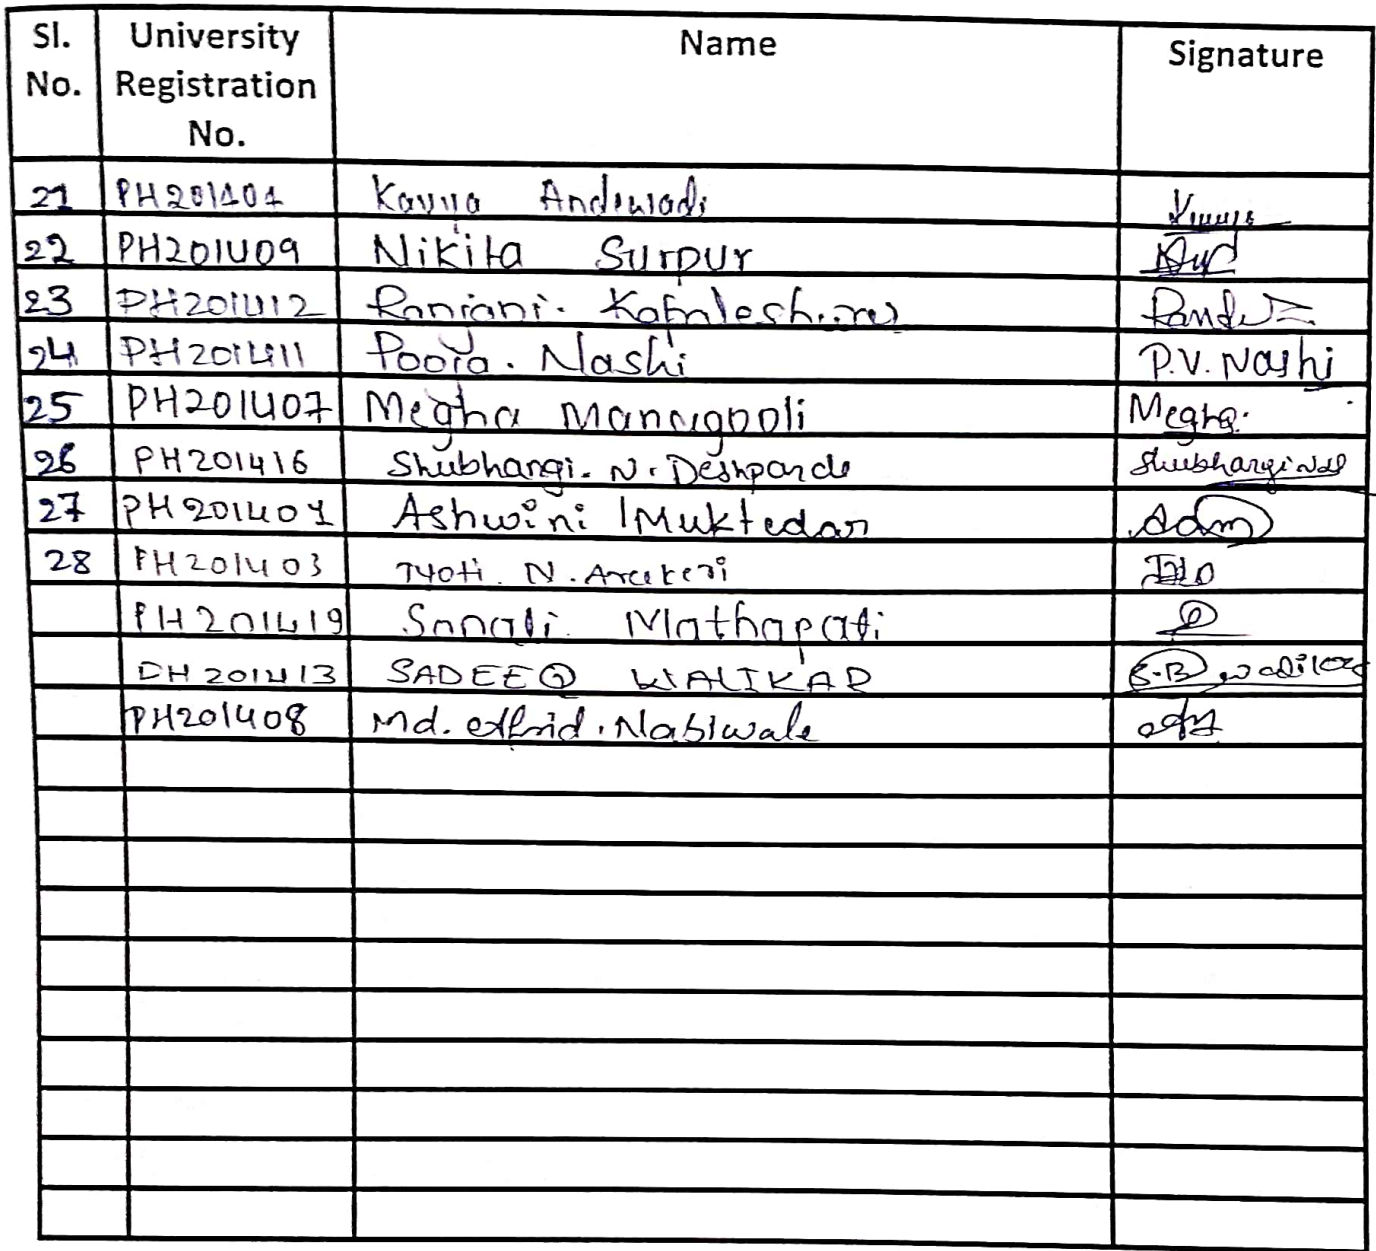 Sl. No. University Registration No. Name Signature
21 PH201404 Kavya Andewadi
22 PH201409 Nikita Surpur
23 PH201412 Ranjani.
24 PH201411 Pooja. Nashi P.V. Nashi
25 PH201407 Megha Managooli Megha.
26 PH201416 Shubhangi. N. Deshpande Shubhangi
27 PH201401 Ashwini Muktedar
28 PH201403 Jyoti. N. Arakeri
PH201419 Sonali Mathapati
PH201413 SADEEQ WALIKAR S.B
PH201408 Md. Nabiwale